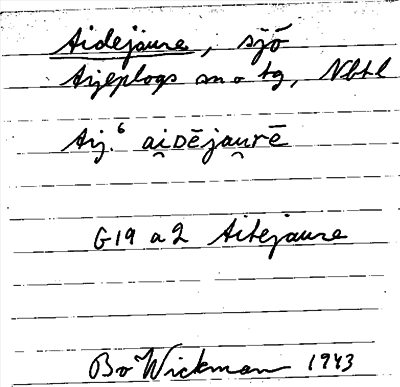 Aidejaure, sjö
Arjeplogs sn o tg, Nbtl
Arj.⁶ ai̯DējAu̯rē
G19 a 2 Aitejaure
Bo Wickman 1943